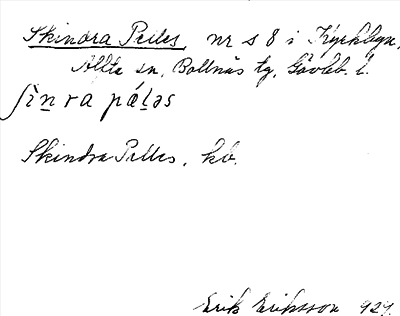 Skindra Pelles, nr s 8 i Kyrkbyn,
Alfta sn, Bollnäs tg, Gävleb. l.
ʃìn̠ra pǽl̠əs
Skindra Pelles, kb.
Erik Eriksson 929.